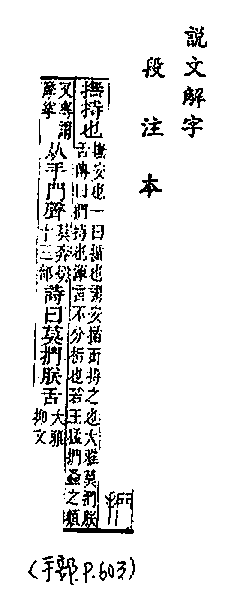 説文解字
段注本
捫
撫持也
撫安也一曰揗也謂安揗而持之也大雅莫捫朕
舌傳曰捫持也渾言不分析也若王猛捫蝨之類
又專謂
摩挲
从手門聲
莫奔切
十三部
詩曰莫捫朕舌
大雅
抑文
(手部.P.603)